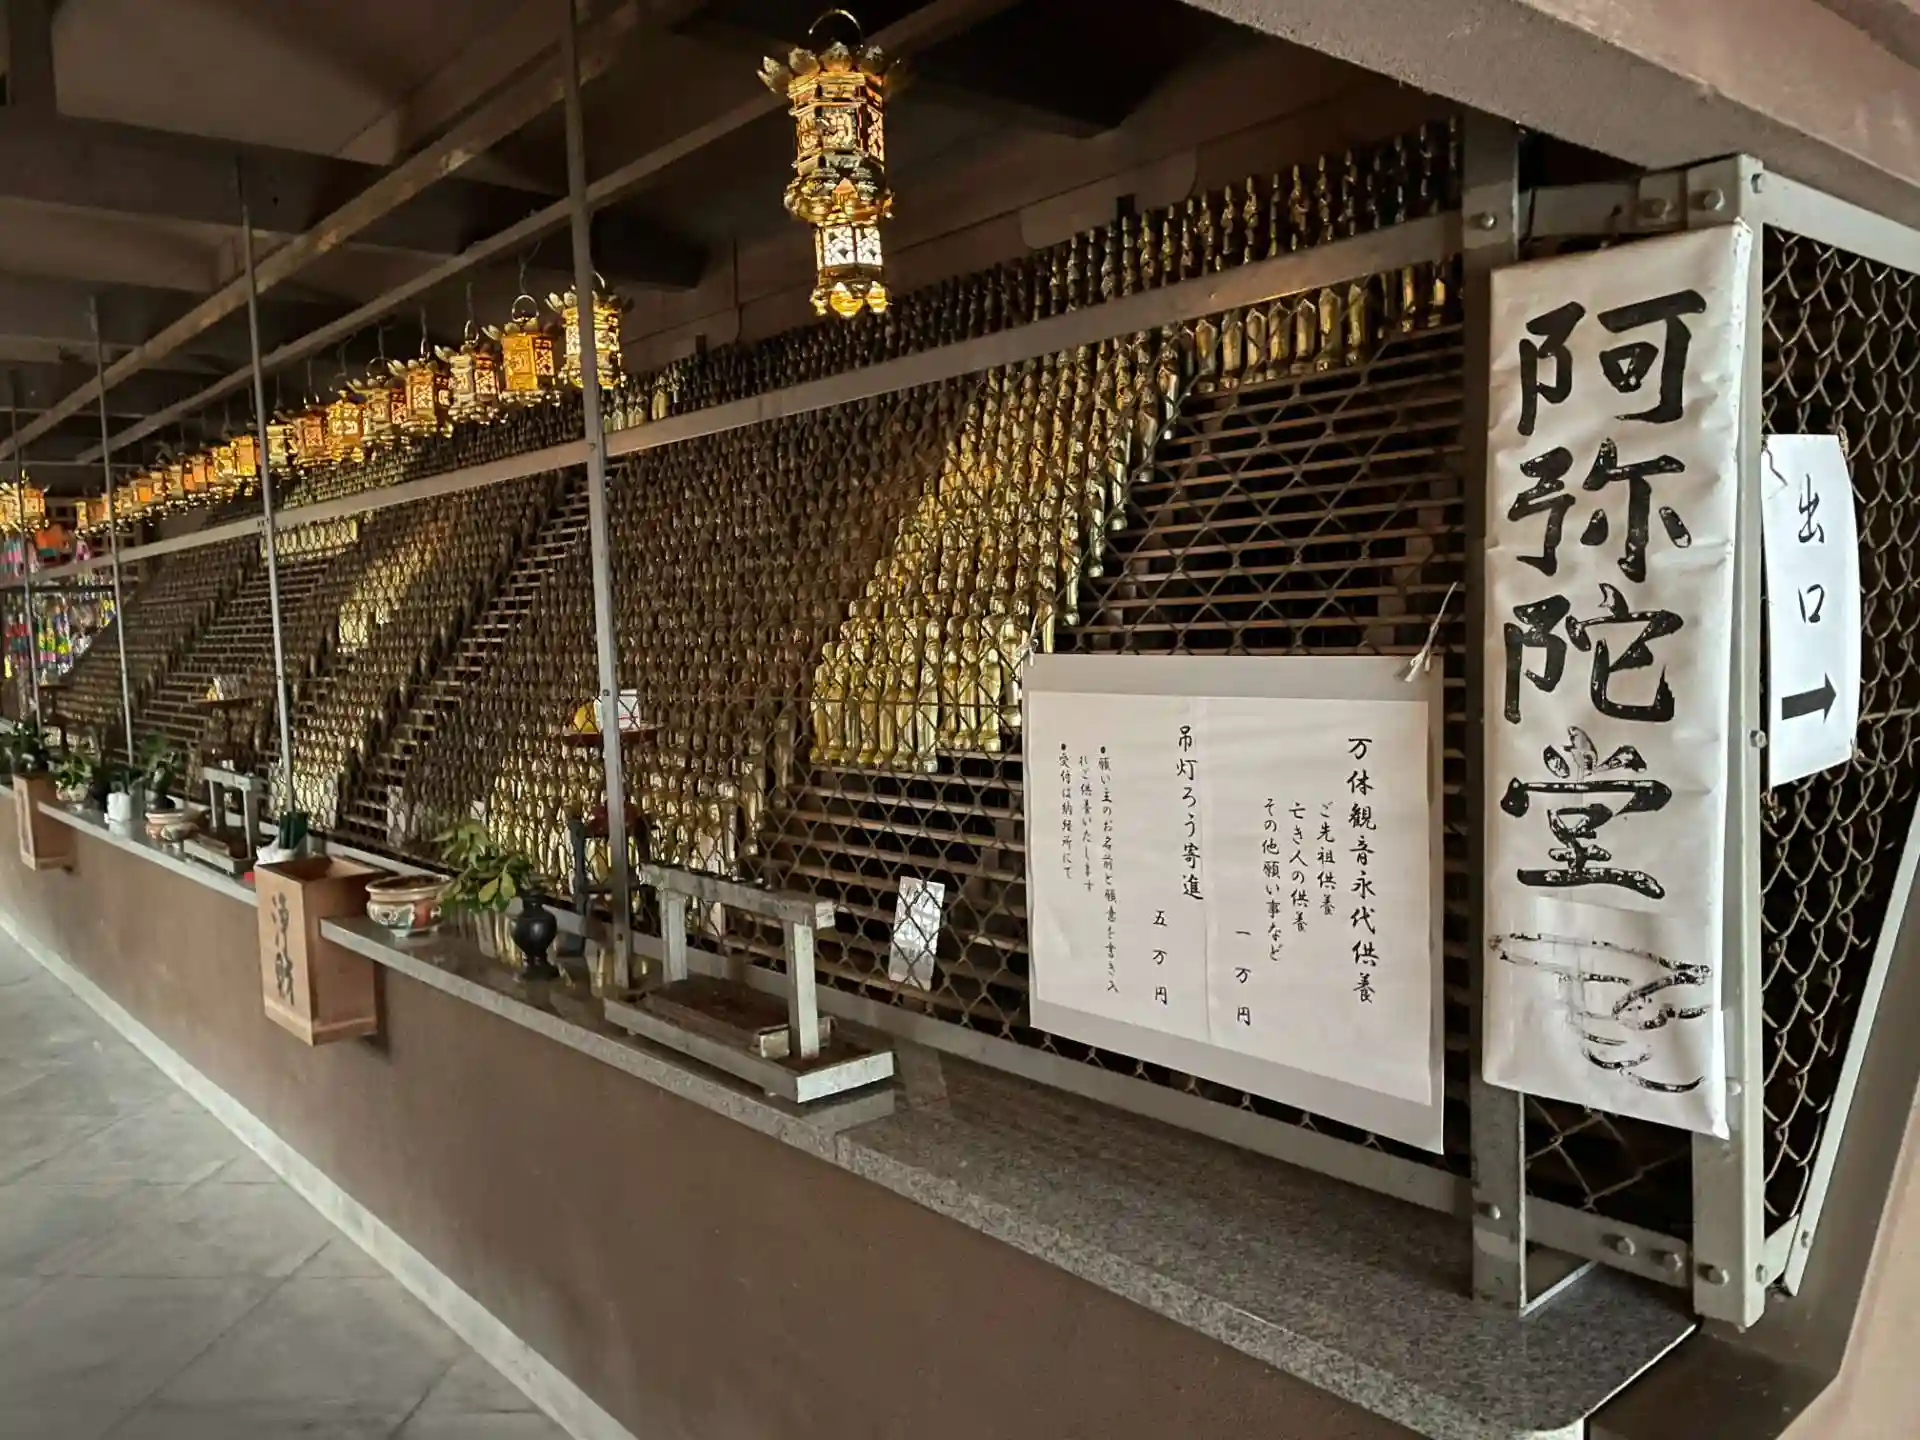 阿弥陀堂
出口
万体観音永代供養
ご先祖供養
亡き人の供養
その他願い事など
一万円
吊灯ろう寄進
五万円
●願い主のお名前と願意を書き入
れご供養いたします
●受付は納経所にて
浄財